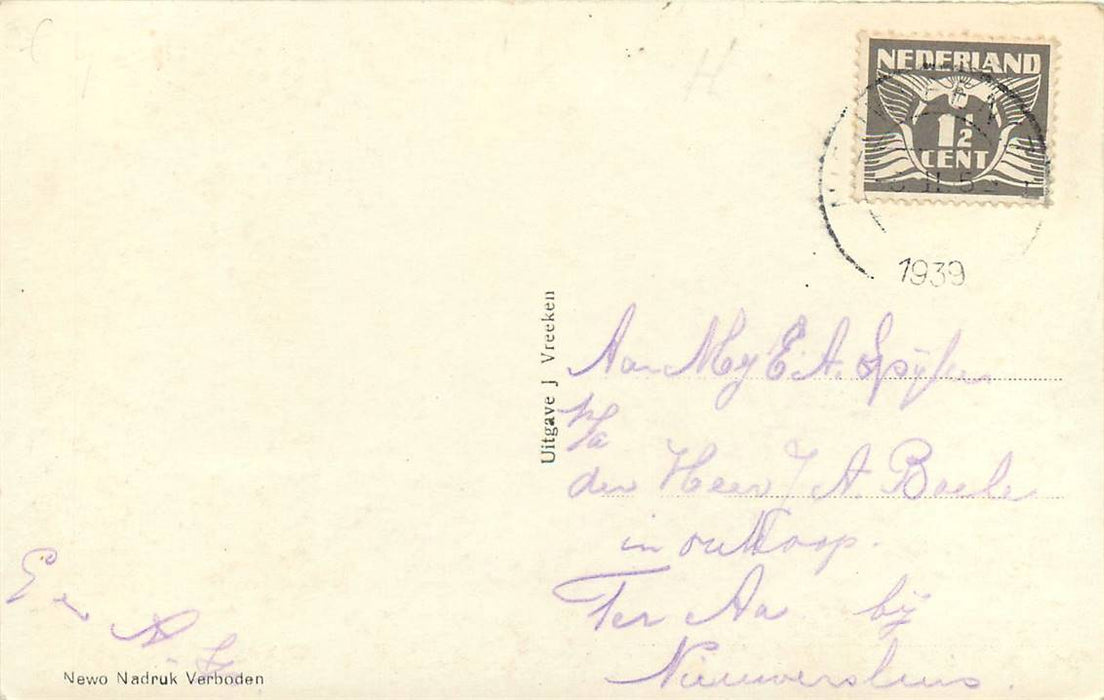 NEDERLAND
1½
CENT
1939
Uitgave J Vreeken
Aan Mej E. A. Spijker
p/a
den Heer J A. Boele
in oukoop.
Ter Aa bij
Nieuwersluis.
G en A. S
Newo Nadruk Verboden